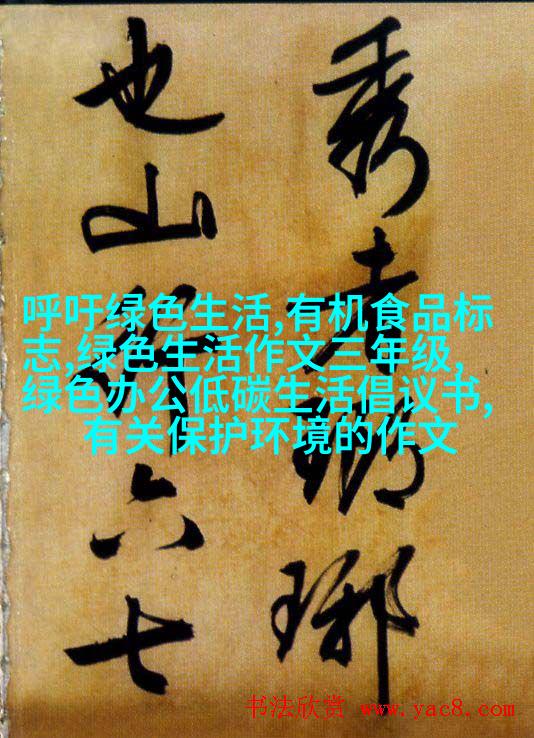 秀者瑯琊
也山行六七
呼吁绿色生活,有机食品标
志,绿色生活作文三年级,
绿色办公低碳生活倡议书,
有关保护环境的作文
书法欣赏 www.yac8.com